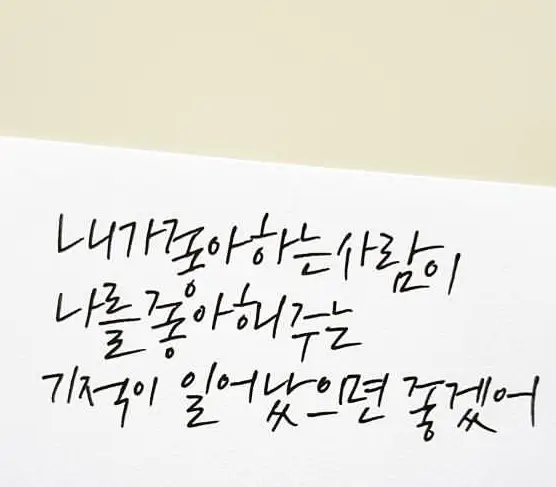 내가 좋아하는 사람이
나를 좋아해 주는
기적이 일어났으면 좋겠어